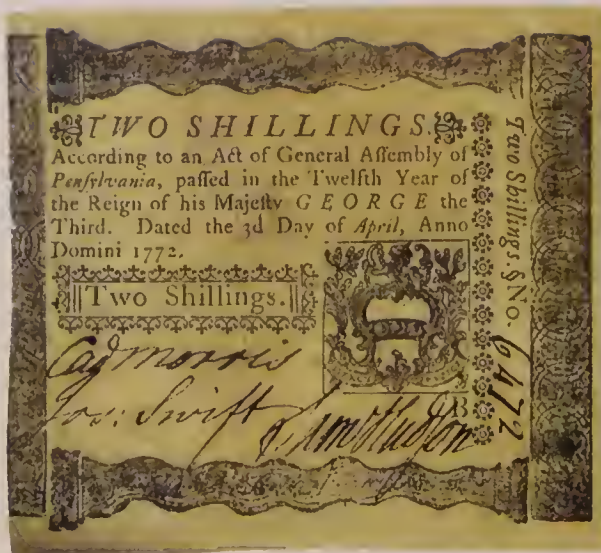 TWO SHILLINGS.
According to an Act of General Aſſembly of
Penſylvania, paſſed in the Twelfth Year of
the Reign of his Majeſty GEORGE the
Third. Dated the 3d Day of April, Anno
Domini 1772.
Two Shillings.
Cad Morris
Jos: Swift
Sam Hudſon
B
Two Shillings. § No. 6472